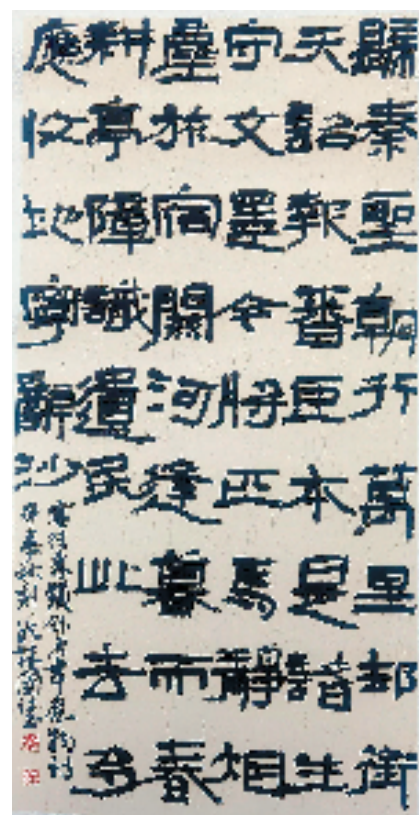 歸奏聖朝行萬里却銜
天詔報蕃臣本是諸生
守文墨今將匹馬靜煙
塵旅宿關河逢暮雨春
耕亭障識遺民此去多
應收地寧辭沙